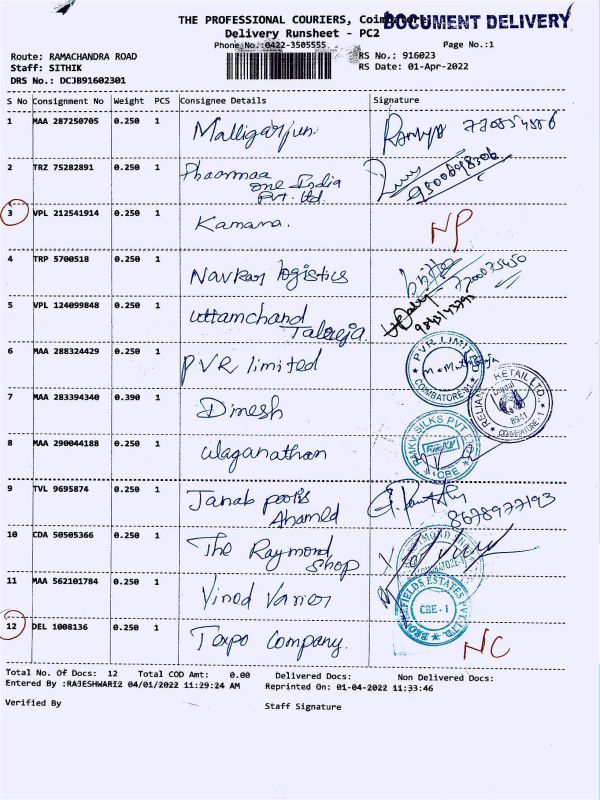 THE PROFESSIONAL COURIERS, Coimbatore
DOCUMENT DELIVERY
Delivery Runsheet - PC2
Phone No.:0422-3505555
Page No.:1
Route: RAMACHANDRA ROAD
RS No.: 916023
Staff: SITHIK
RS Date: 01-Apr-2022
DRS No.: DCJB91602301
S No Consignment No Weight PCS Consignee Details Signature
1 MAA 287250705 0.250 1 Malligarjun.
2 TRZ 75282891 0.250 1 Phaarmaa
one India
Pvt. Ltd.
3 VPL 212541914 0.250 1 Kamana. NP
4 TRP 5700518 0.250 1 Navkar logistics
5 VPL 124099848 0.250 1 Uttamchand
Talreja
6 MAA 288324429 0.250 1 PVR limited
PVR LIMITED
COIMBATORE-01
7 MAA 283394340 0.390 1 Dinesh
RETAIL LTD.
COIMBATORE-1
8 MAA 290044188 0.250 1 Ulaganathan
SILKS PVT LTD
CBE
9 TVL 9695874 0.250 1 Janab
Ahamed 8678977193
10 CDA 50505366 0.250 1 The Raymond
Shop
11 MAA 562101784 0.250 1 Vinod Varier
FIELDS ESTATES PVT LTD.
CBE-1
12 DEL 1008136 0.250 1 Texpo Company. NC
Total No. Of Docs: 12 Total COD Amt: 0.00 Delivered Docs: Non Delivered Docs:
Entered By :RAJESHWARI2 04/01/2022 11:29:24 AM Reprinted On: 01-04-2022 11:33:46
Verified By Staff Signature